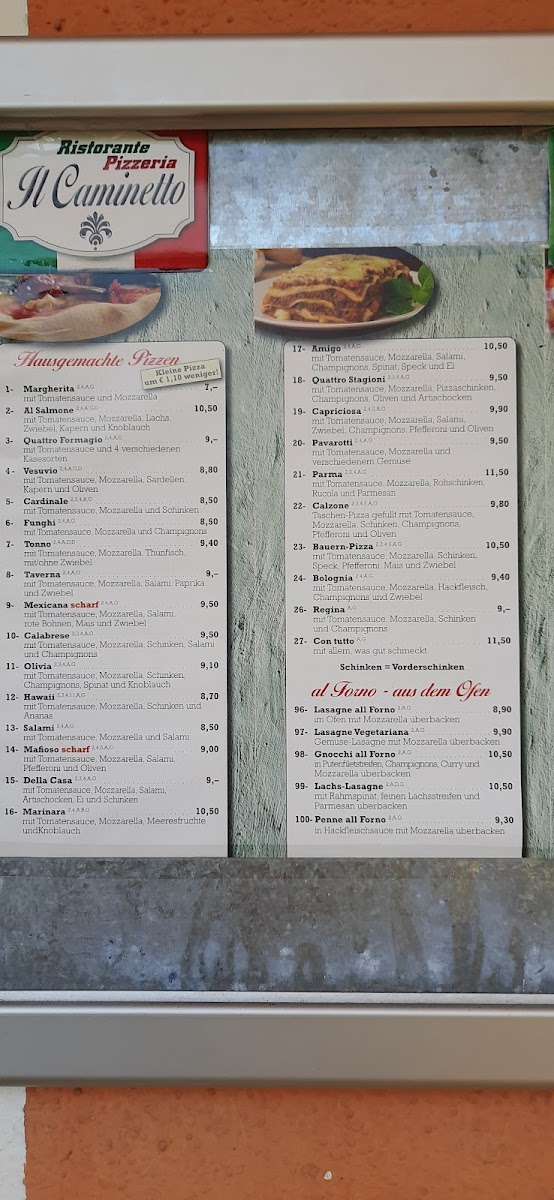 Ristorante
Pizzeria
Il Caminetto
Hausgemachte Pizzen
Kleine Pizza
um € 1,10 weniger!
1- Margherita 7,–
mit Tomatensauce und Mozzarella
2- Al Salmone 10,50
mit Tomatensauce, Mozzarella, Lachs,
Zwiebel, Kapern und Knoblauch
3- Quattro Formagio 9,–
mit Tomatensauce und 4 verschiedenen
Käsesorten
4- Vesuvio 8,80
mit Tomatensauce, Mozzarella, Sardellen,
Kapern und Oliven
5- Cardinale 8,50
mit Tomatensauce, Mozzarella und Schinken
6- Funghi 8,50
mit Tomatensauce, Mozzarella und Champignons
7- Tonno 9,40
mit Tomatensauce, Mozzarella, Thunfisch,
mit/ohne Zwiebel
8- Taverna 9,–
mit Tomatensauce, Mozzarella, Salami, Paprika
und Zwiebel
9- Mexicana scharf 9,50
mit Tomatensauce, Mozzarella, Salami,
rote Bohnen, Mais und Zwiebel
10- Calabrese 9,50
mit Tomatensauce, Mozzarella, Schinken, Salami
und Champignons
11- Olivia 9,10
mit Tomatensauce, Mozzarella, Schinken,
Champignons, Spinat und Knoblauch
12- Hawaii 8,70
mit Tomatensauce, Mozzarella, Schinken und
Ananas
13- Salami 8,50
mit Tomatensauce, Mozzarella und Salami
14- Mafioso scharf 9,00
mit Tomatensauce, Mozzarella, Salami,
Pfefferoni und Oliven
15- Della Casa 9,–
mit Tomatensauce, Mozzarella, Salami,
Artischocken, Ei und Schinken
16- Marinara 10,50
mit Tomatensauce, Mozzarella, Meeresfrüchte
undKnoblauch
17- Amigo 10,50
mit Tomatensauce, Mozzarella, Salami,
Champignons, Spinat, Speck und Ei
18- Quattro Stagioni 9,50
mit Tomatensauce, Mozzarella, Pizzaschinken,
Champignons, Oliven und Artischocken
19- Capriciosa 9,90
mit Tomatensauce, Mozzarella, Salami,
Zwiebel, Champignons, Pfefferoni und Oliven
20- Pavarotti 9,50
mit Tomatensauce, Mozzarella und
verschiedenem Gemüse
21- Parma 11,50
mit Tomatensauce, Mozzarella, Rohschinken,
Rucola und Parmesan
22- Calzone 9,80
Taschen-Pizza gefüllt mit Tomatensauce,
Mozzarella, Schinken, Champignons,
Pfefferoni und Oliven
23- Bauern-Pizza 10,50
mit Tomatensauce, Mozzarella, Schinken,
Speck, Pfefferoni, Mais und Zwiebel
24- Bolognia 9,40
mit Tomatensauce, Mozzarella, Hackfleisch,
Champignons und Zwiebel
26- Regina A,G 9,–
mit Tomatensauce, Mozzarella, Schinken
und Champignons
27- Con tutto A,G 11,50
mit allem, was gut schmeckt
Schinken = Vorderschinken
al Forno - aus dem Ofen
96- Lasagne all Forno 8,90
im Ofen mit Mozzarella überbacken
97- Lasagne Vegetariana 9,90
Gemüse-Lasagne mit Mozzarella überbacken
98- Gnocchi all Forno 10,50
in Putenfiletstreifen, Champignons, Curry und
Mozzarella überbacken
99- Lachs-Lasagne 10,50
mit Rahmspinat, feinen Lachsstreifen und
Parmesan überbacken
100- Penne all Forno 9,30
in Hackfleischsauce mit Mozzarella überbacken